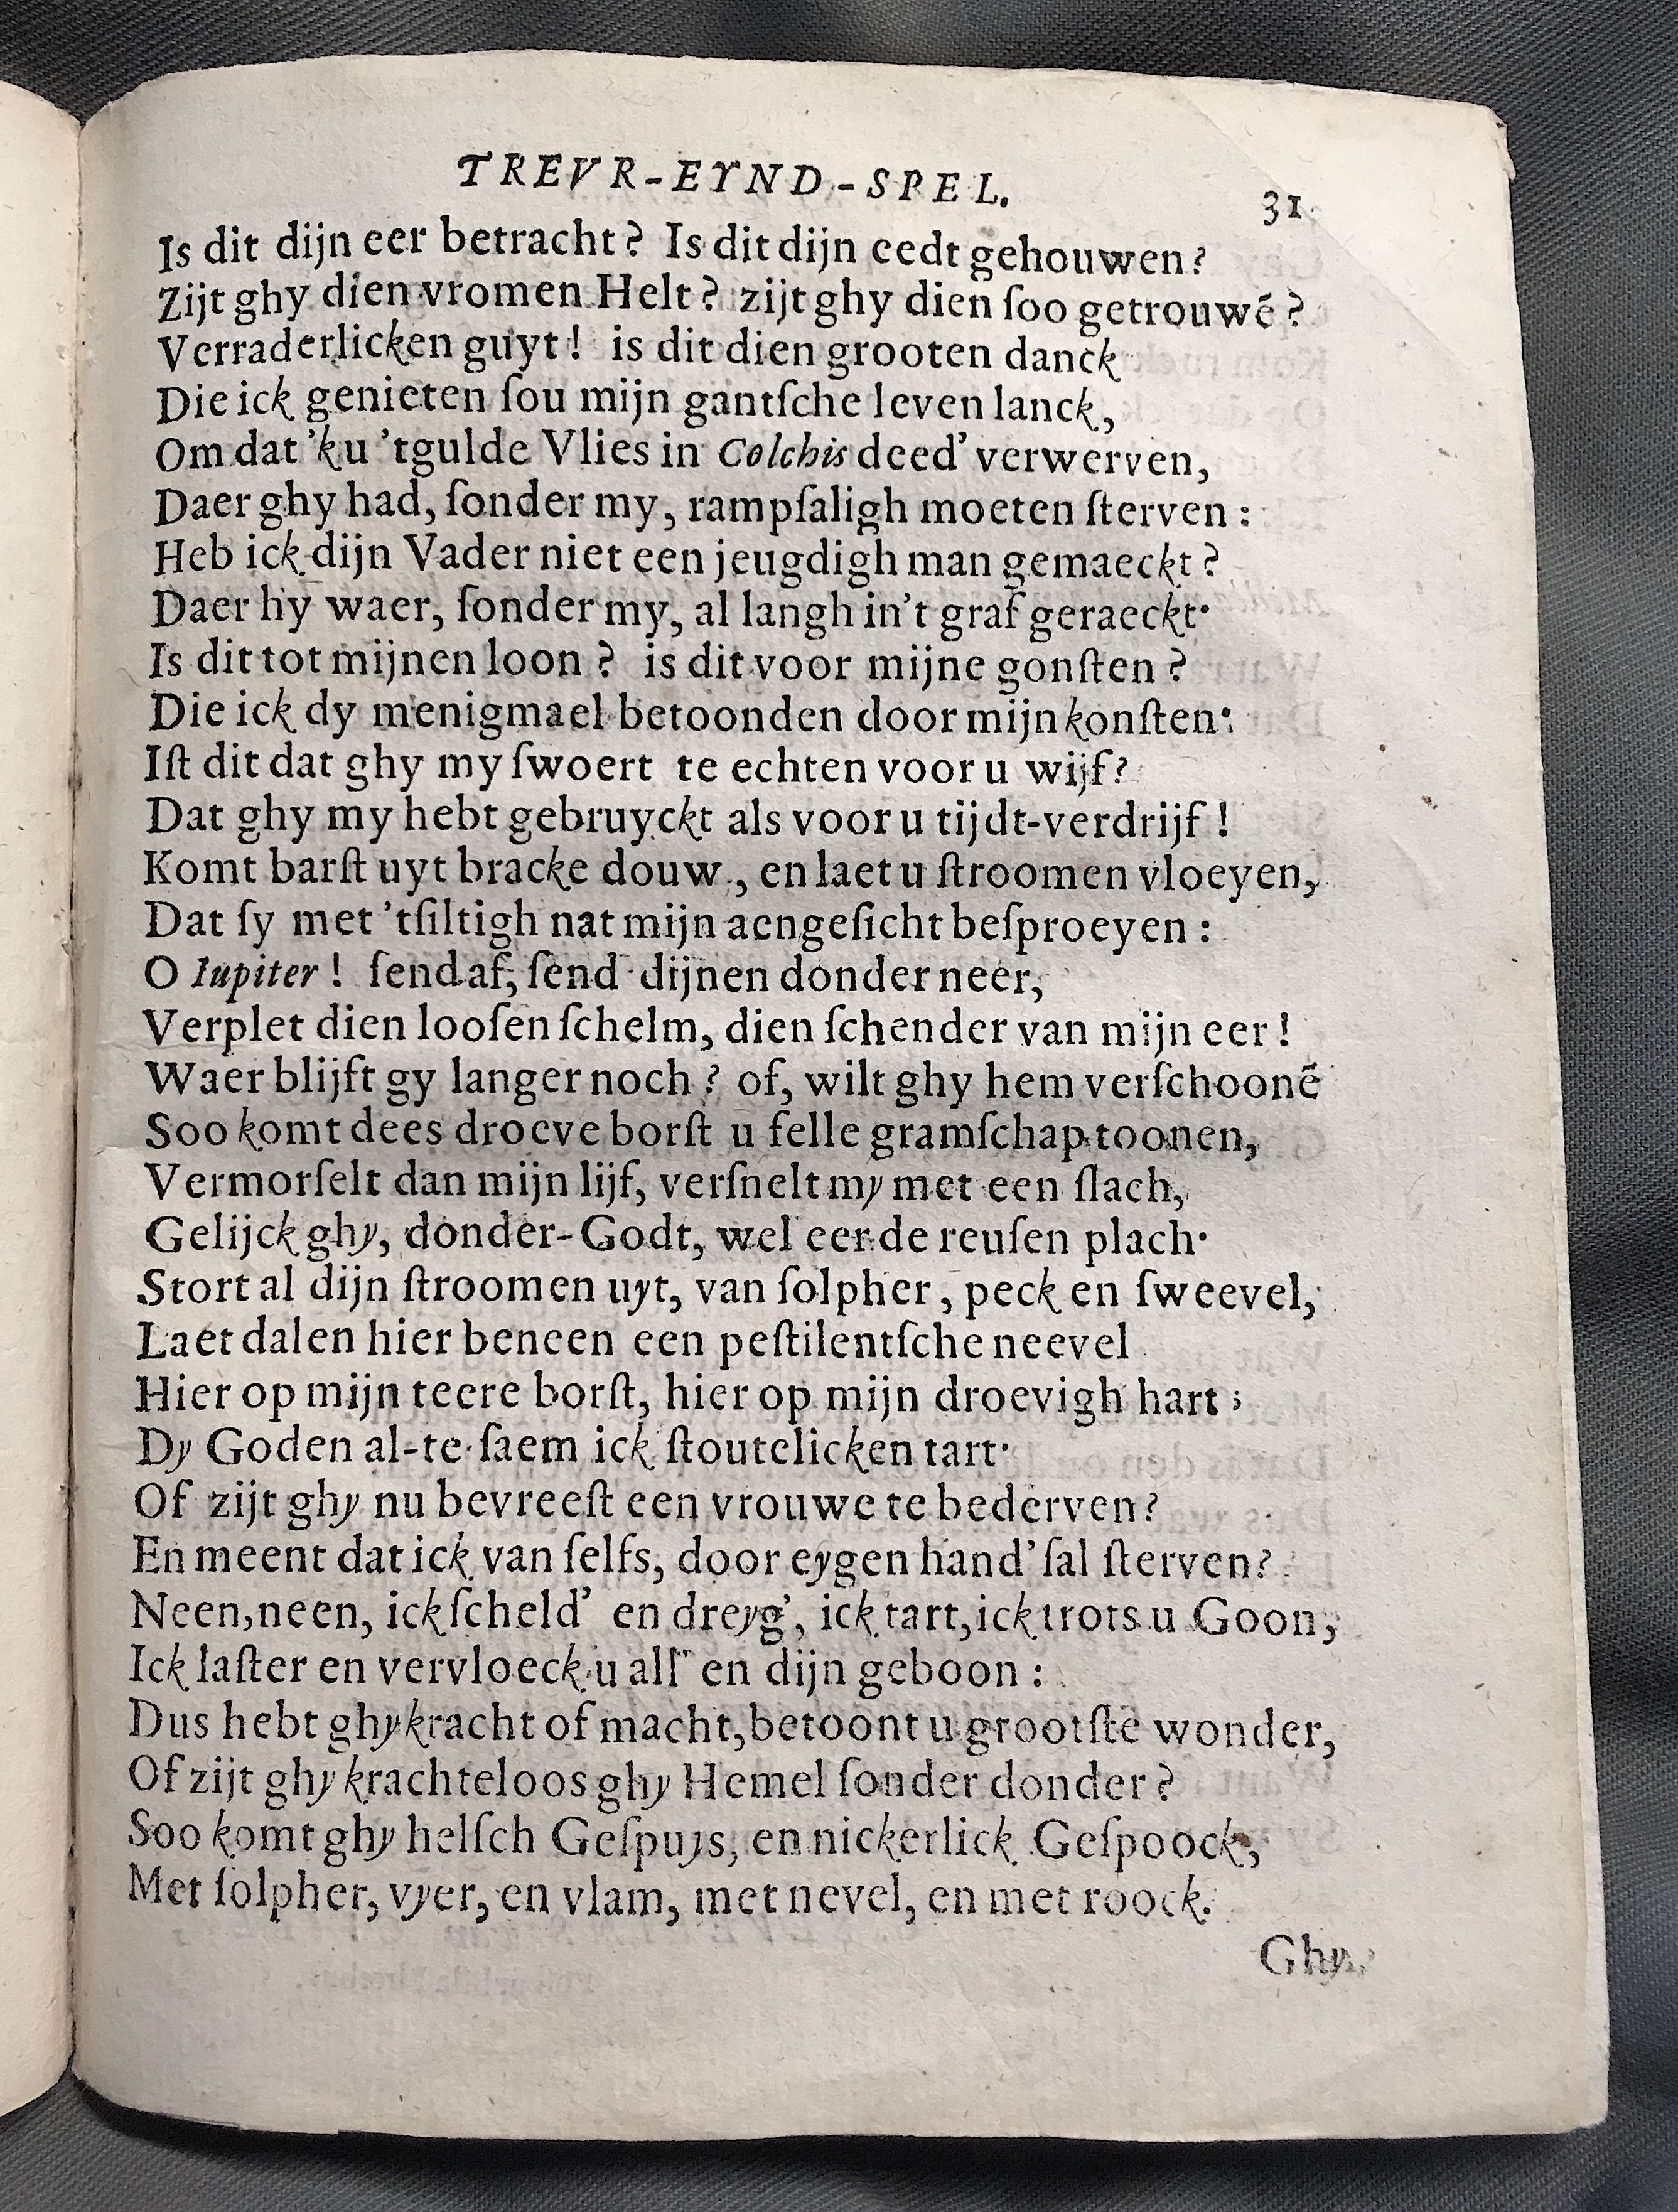 TREVR-EYND-SPEL.
31
Is dit dijn eer betracht? Is dit dijn eedt gehouwen?
Zijt ghy dien vromen Helt? zijt ghy dien ſoo getrouwẽ?
Verraderlicken guyt! is dit dien grooten danck
Die ick genieten ſou mijn gantſche leven lanck,
Om dat 'k u 'tgulde Vlies in Colchis deed' verwerven,
Daer ghy had, ſonder my, rampſaligh moeten ſterven:
Heb ick dijn Vader niet een jeugdigh man gemaeckt?
Daer hy waer, ſonder my, al langh in't graf geraeckt·
Is dit tot mijnen loon? is dit voor mijne gonſten?
Die ick dy menigmael betoonden door mijn konſten:
Iſt dit dat ghy my ſwoert te echten voor u wijf?
Dat ghy my hebt gebruyckt als voor u tijdt-verdrijf!
Komt barſt uyt bracke douw, en laet u ſtroomen vloeyen,
Dat ſy met 'tſiltigh nat mijn aengeſicht beſproeyen:
O Iupiter! ſend af, ſend dijnen donder neer,
Verplet dien looſen ſchelm, dien ſchender van mijn eer!
Waer blijft gy langer noch? of, wilt ghy hem verſchoonẽ
Soo komt dees droeve borſt u felle gramſchap toonen,
Vermorſelt dan mijn lijf, verſnelt my met een ſlach,
Gelijck ghy, donder-Godt, wel eer de reuſen plach·
Stort al dijn ſtroomen uyt, van ſolpher, peck en ſweevel,
Laet dalen hier beneen een peſtilentſche neevel
Hier op mijn teere borſt, hier op mijn droevigh hart;
Dy Goden al-te-ſaem ick ſtoutelicken tart·
Of zijt ghy nu bevreeſt een vrouwe te bederven?
En meent dat ick van ſelfs, door eygen hand' ſal ſterven?
Neen, neen, ick ſcheld' en dreyg', ick tart, ick trots u Goon,
Ick laſter en vervloeck u all' en dijn geboon:
Dus hebt ghy kracht of macht, betoont u grootſte wonder,
Of zijt ghy krachteloos ghy Hemel ſonder donder?
Soo komt ghy helſch Geſpuys, en nickerlick Geſpoock,
Met ſolpher, vyer, en vlam, met nevel, en met roock.
Ghy